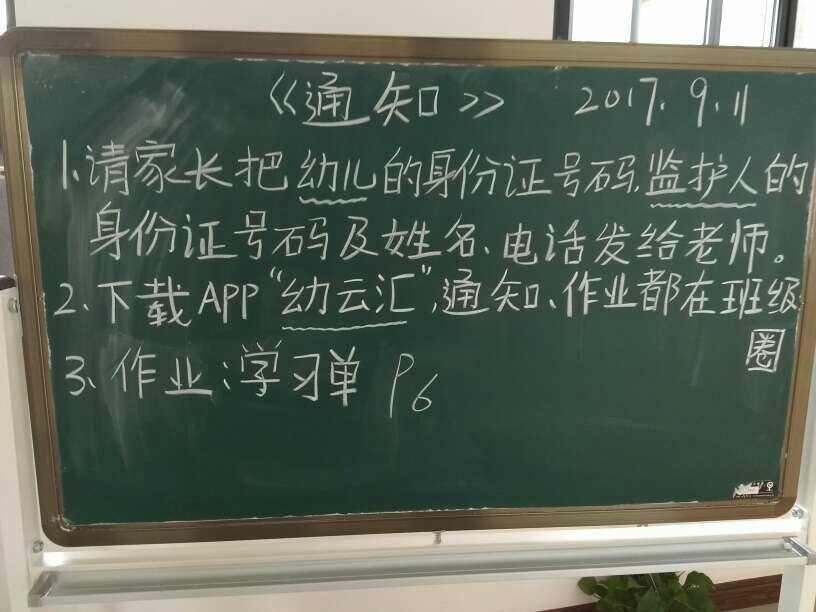 《通知》 2017.9.11
1.请家长把幼儿的身份证号码、监护人的
身份证号码及姓名、电话发给老师。
2、下载APP“幼云汇”,通知、作业都在班级
圈
3、作业:学习单 P6